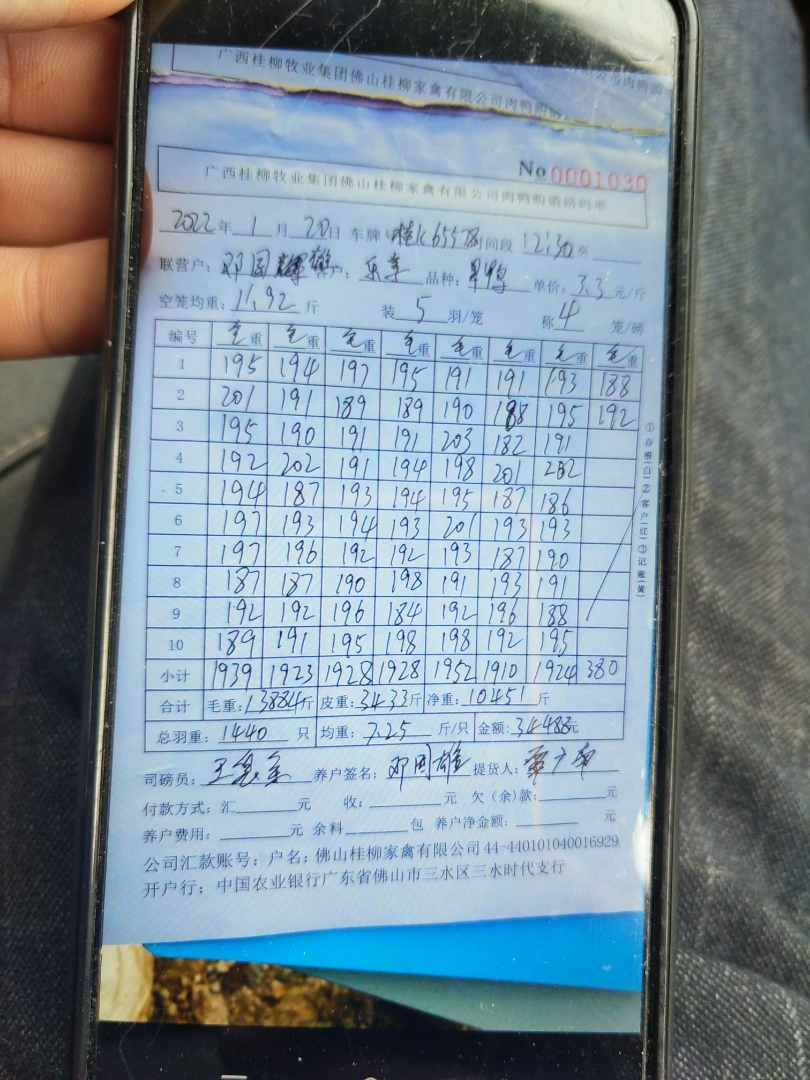 广西桂柳牧业集团佛山桂柳家禽有限公司肉鸭购销
No 0001030
广西桂柳牧业集团佛山桂柳家禽有限公司肉鸭购销磅码单
2022年 1月 20日 车牌号 桂K65578 时间段 12:30 至
联营户: 邓国雄 客户: 乐 品种: 旱鸭 单价: 3.3 元/斤
空笼均重: 11.92 斤 装 5 羽/笼 称 4 笼/磅
编号 毛重 毛重 毛重 毛重 毛重 毛重 毛重 毛重
1 195 194 197 195 191 191 193 188
2 201 191 189 189 190 188 195 192
3 195 190 191 191 203 182 191
4 192 202 191 194 198 201 202
5 194 187 193 194 195 187 186
6 197 193 194 193 201 193 193
7 197 196 192 192 193 187 190
8 187 187 190 198 191 193 191
9 192 192 196 184 192 196 188
10 189 191 195 198 198 192 195
小计 1939 1923 1928 1928 1952 1910 1924 380
合计 毛重: 13884斤 皮重: 3433斤 净重: 10451 斤
总羽重: 1440 只 均重: 7.25 斤/只 金额: 34488元
司磅员: 王 养户签名: 邓国雄 提货人:
付款方式: 汇 元 收: 元 欠(余)款: 元
养户费用: 元 余料 包 养户净金额: 元
公司汇款账号: 户名: 佛山桂柳家禽有限公司 44-440101040016929
开户行: 中国农业银行广东省佛山市三水区三水时代支行
①存根(白)②客户(红)③记账(黄)